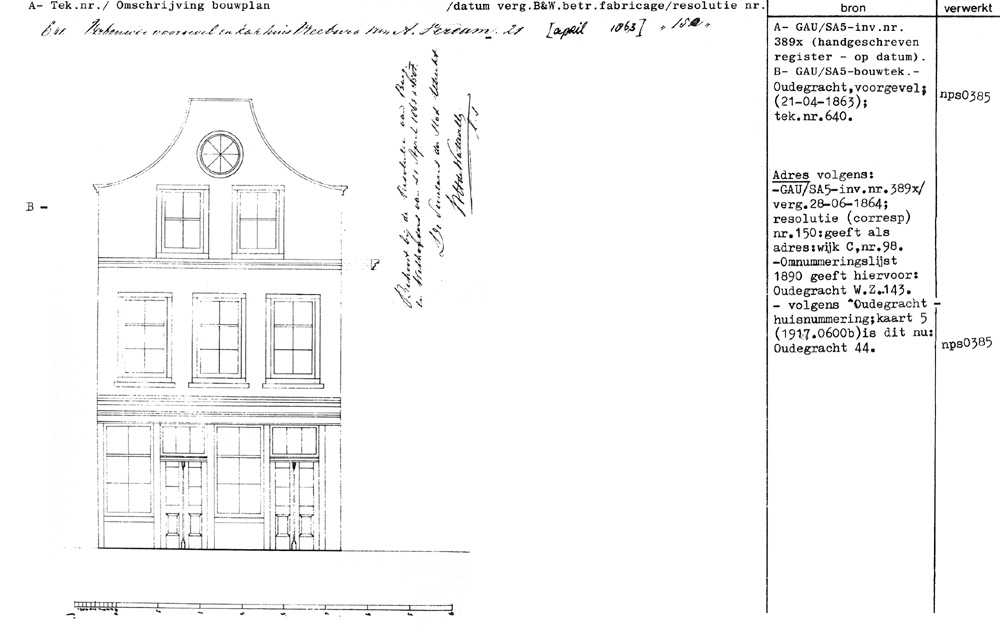 A- Tek.nr./ Omschrijving bouwplan /datum verg.B&W.betr.fabricage/resolutie nr.
bron
verwerkt
voorgevel 21 [april 1863] "150"
B -
A- GAU/SA5-inv.nr.
389x (handgeschreven
register - op datum).
B- GAU/SA5-bouwtek.-
Oudegracht,voorgevel;
(21-04-1863);
tek.nr.640.
nps0385
Adres volgens:
-GAU/SA5-inv.nr.389x/
verg.28-06-1864;
resolutie (corresp)
nr.150:geeft als
adres:wijk C,nr.98.
-Omnummeringslijst
1890 geeft hiervoor:
Oudegracht W.Z.143.
- volgens "Oudegracht -
huisnummering;kaart 5
(1917.0600b)is dit nu:
Oudegracht 44.
nps0385
Behoort bij de Resolutie van Burg.
en Wethouders van 21 April 1863
De Secretaris der Stad Utrecht